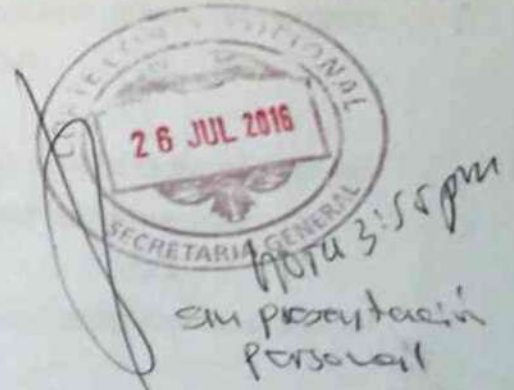 26 JUL 2016
SECRETARIA GENERAL
Hora 3:55 pm
sin presentación
personal